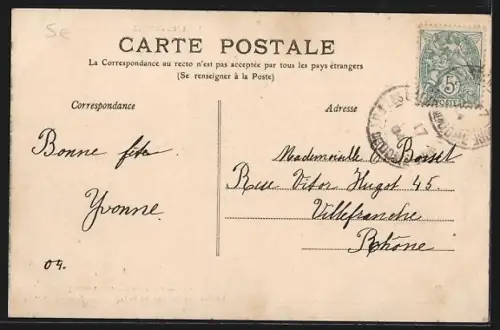 5e
CARTE POSTALE
La Correspondance au recto n'est pas acceptée par tous les pays étrangers
(Se renseigner à la Poste)
Correspondance
Adresse
Bonne fête
Yvonne
04.
Mademoiselle
Rue Vitor Hugot 45.
Villefranche
Rhône
5c
17
04